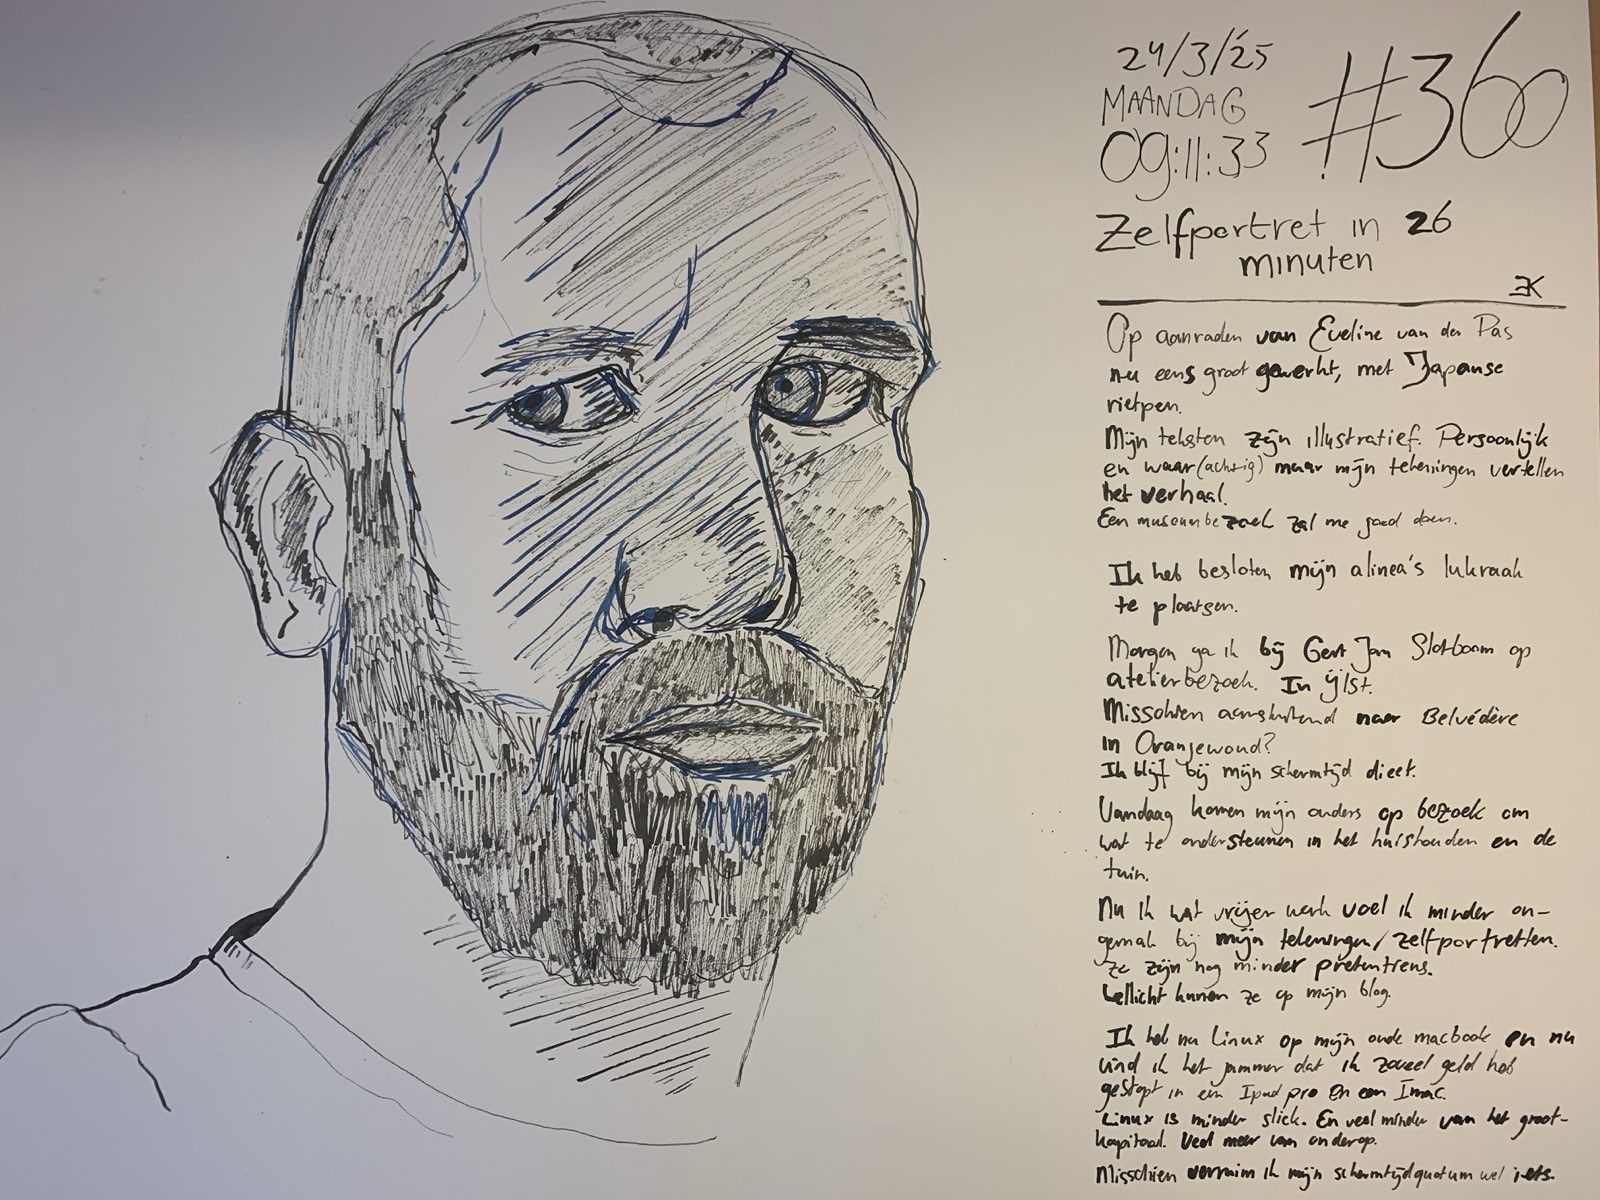 24/3/'25
MAANDAG
09:11:33
#360
Zelfportret in 26
minuten
EK
Op aanraden van Eveline van der Pas
nu eens groot gewerkt, met Japanse
rietpen.
Mijn teksten zijn illustratief. Persoonlijk
en waar(achtig) maar mijn tekeningen vertellen
het verhaal.
Een museumbezoek zal me goed doen.
Ik heb besloten mijn alinea's lukraak
te plaatsen.
Morgen ga ik bij Gert Jan Slotboom op
atelierbezoek. In IJlst.
Misschien aansluitend naar Belvédère
in Oranjewoud?
Ik blijf bij mijn schermtijd dieet.
Vandaag komen mijn ouders op bezoek om
wat te ondersteunen in het huishouden en de
tuin.
Nu ik wat vrijer werk voel ik minder on-
gemak bij mijn tekeningen/zelfportretten.
Ze zijn nog minder pretentieus.
Wellicht kunnen ze op mijn blog.
Ik heb nu Linux op mijn oude macbook en nu
vind ik het jammer dat ik zoveel geld heb
gestopt in een Ipad pro en een Imac.
Linux is minder slick. En veel minder van het groot-
kapitaal. Veel meer van onderop.
Misschien verruim ik mijn schermtijdquotum wel iets.